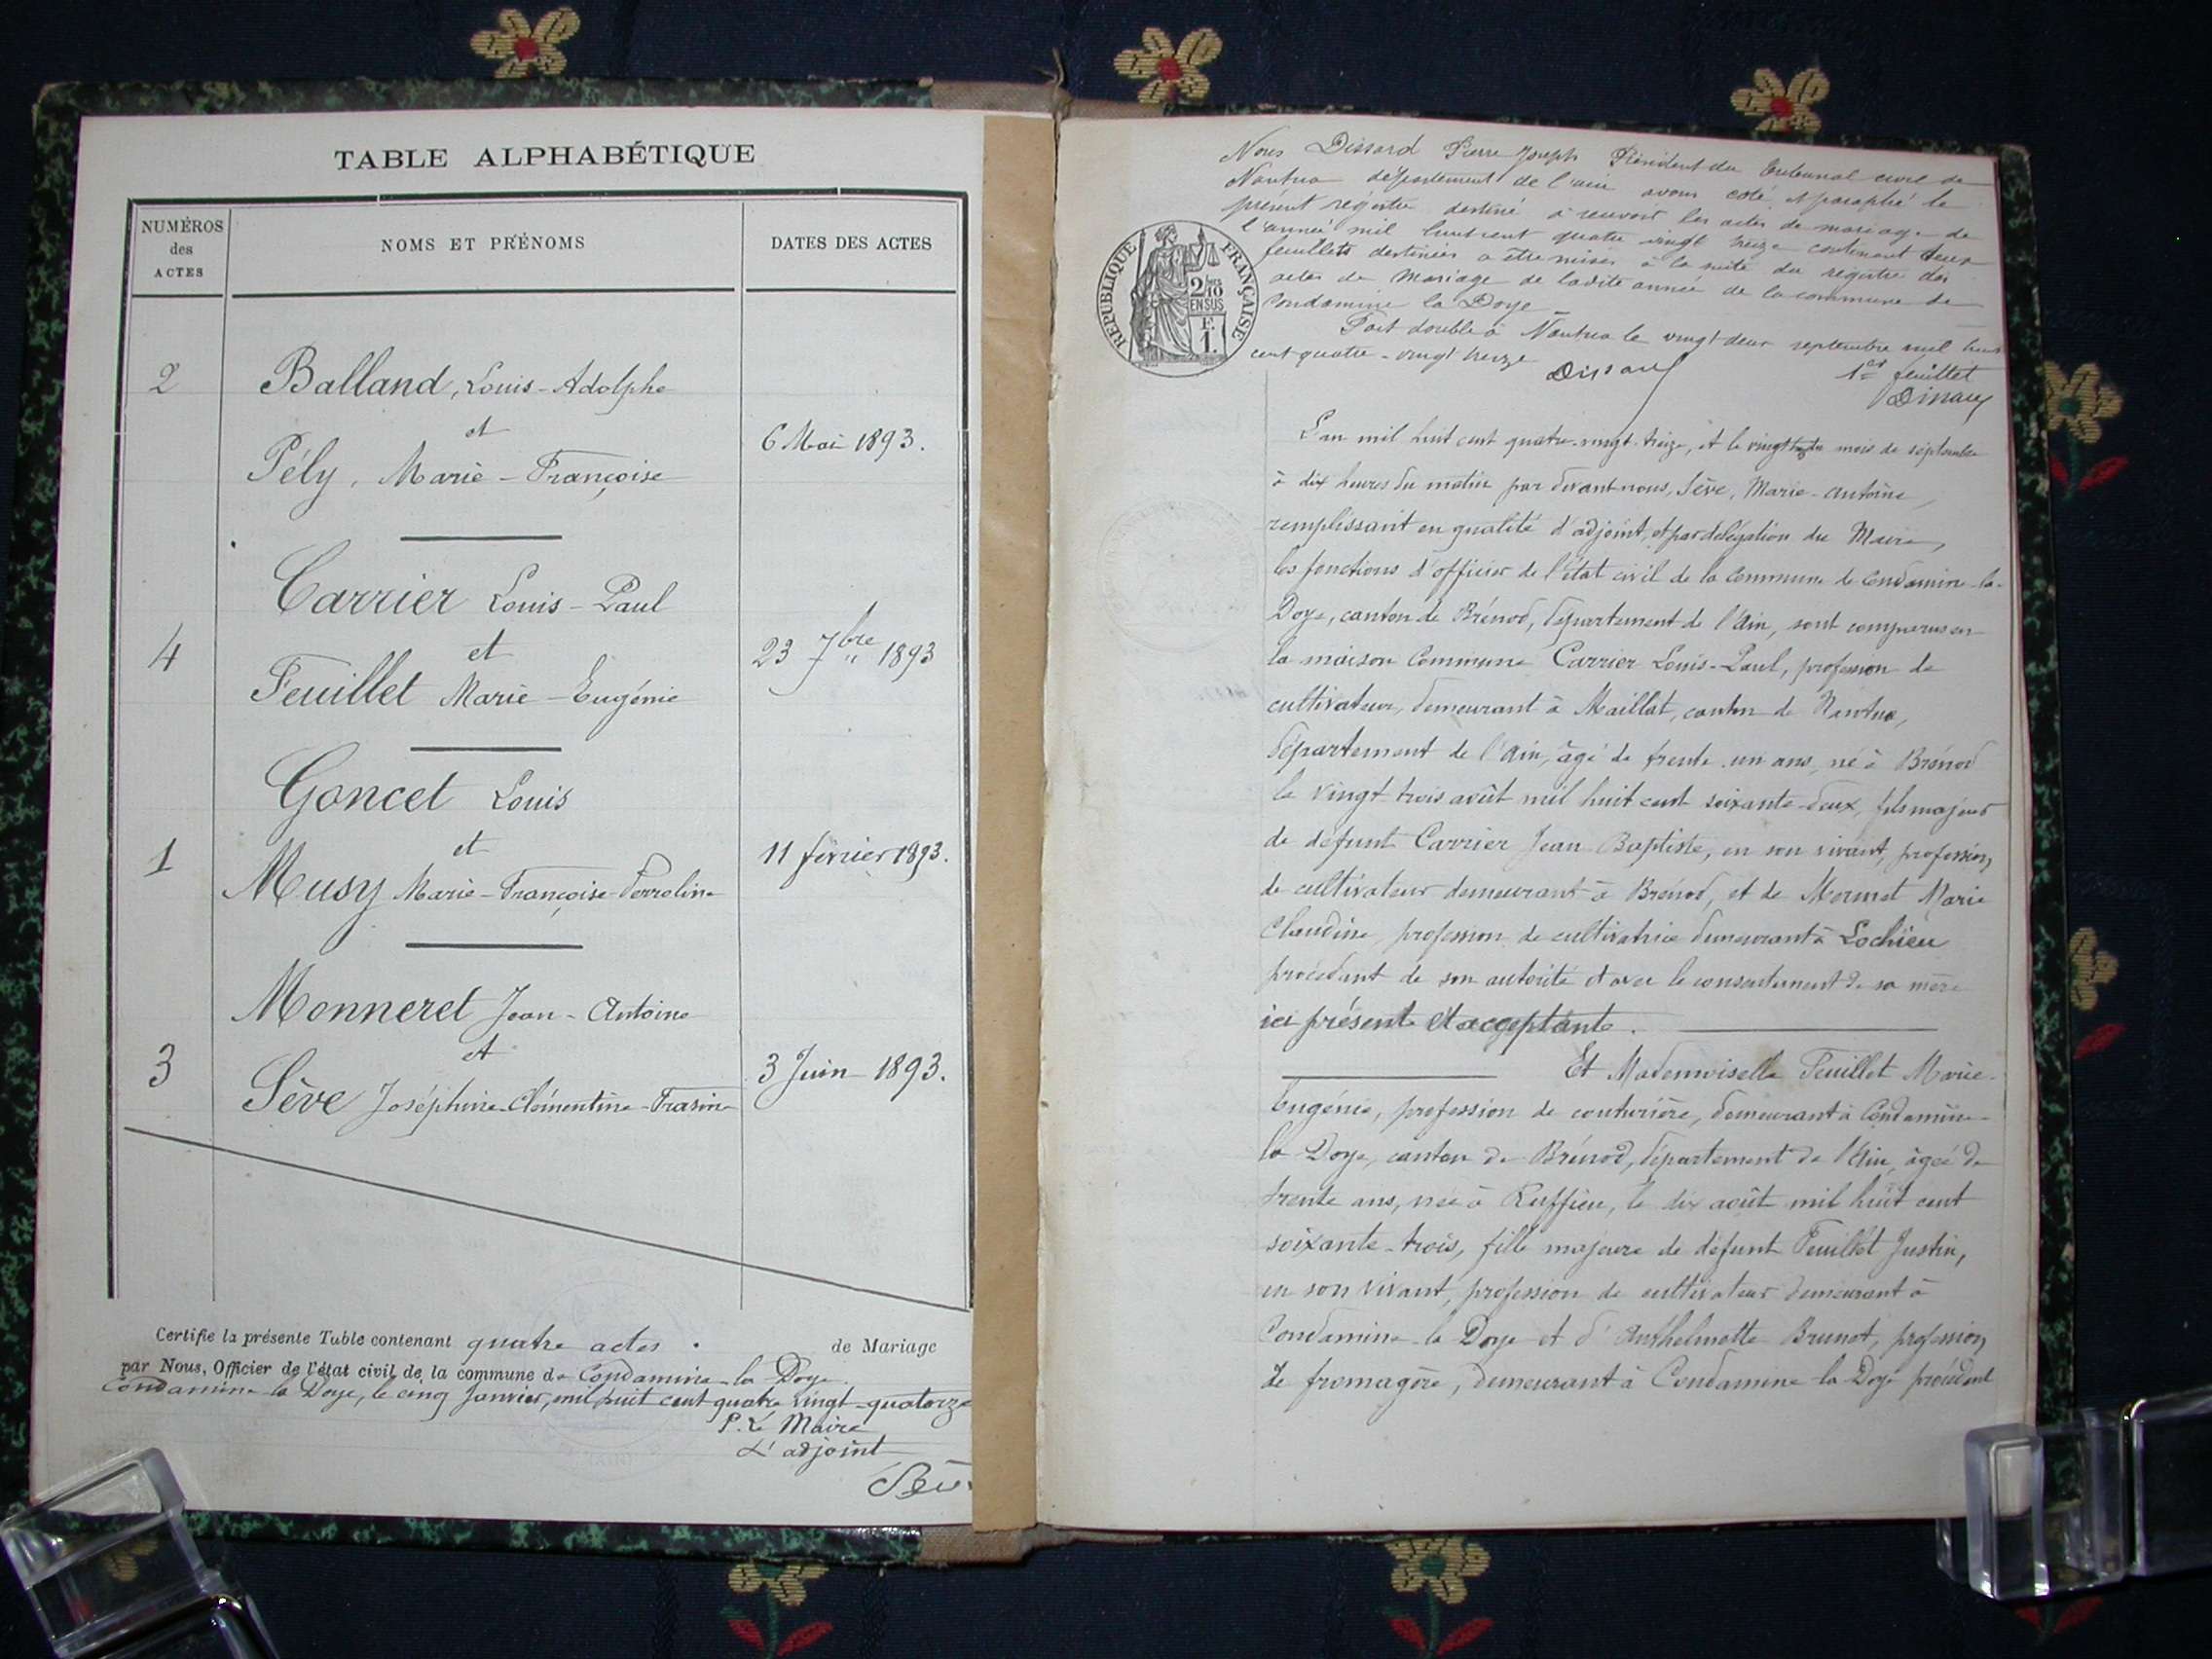 TABLE ALPHABÉTIQUE
NUMÉROS
des
ACTES
NOMS ET PRÉNOMS
DATES DES ACTES
2
Balland, Louis-Adolphe
et
6 Mai 1893.
Pély, Marie-Françoise
Carrier Louis-Paul
4
et
23 7bre 1893
Feuillet Marie-Eugénie
Goncet Louis
1
et
11 février 1893.
Musy Marie-Françoise-Perroline
Monneret Jean-Antoine
3
et
3 Juin 1893.
Sève Joséphine-Clémentine-
Certifie la présente Table contenant quatre actes. de Mariage
par Nous, Officier de l'état civil de la commune de Condamine-la Doye.
Condamine la Doye, le cinq Janvier, mil huit cent quatre vingt-quatorze
P. Le Maire
L'adjoint
Sève
Nous Dissard Pierre Joseph Président du tribunal civil de
Nantua département de l'ain avons coté et paraphé le
présent registre destiné à recevoir les actes de mariage de
l'année mil huit cent quatre vingt treize contenant deux
feuillets destinés a être mises à la suite du registre des
actes de Mariage de ladite année de la commune de
Condamine la Doye
Fait double à Nantua le vingt deux septembre mil huit
cent quatre-vingt treize
Dissard
1er feuillet
Dissard
RÉPUBLIQUE FRANÇAISE
2/10
EN SUS
F.
1.
L'an mil huit cent quatre-vingt-treize, et le du mois de septembre
à dix heures du matin par devant nous, Sève, Marie-Antoine
remplissant en qualité d'adjoint, et par délégation du Maire,
les fonctions d'officier de l'état civil de la Commune de Condamine-la-
Doye, canton de Brénod, département de l'Ain, sont comparus en
la maison Commune Carrier Louis-Paul, profession de
cultivateur, demeurant à Maillat, canton de Nantua,
département de l'Ain, âgé de trente un ans, né à Brénod
le vingt trois août mil huit cent soixante-deux, fils majeur
de défunt Carrier Jean Baptiste, en son vivant, profession
de cultivateur demeurant à Brénod, et de Mermet Marie
Claudine profession de cultivatrice demeurant à Lochieu
procédant de son autorité et avec le consentement de sa mère
ici présente et acceptante.
Et Mademoiselle Feuillet Marie-
Eugénie, profession de couturière, demeurant à Condamine-
la Doye, canton de Brénod, département de l'Ain, âgée de
trente ans, née à Ruffieu, le dix août mil huit cent
soixante-trois, fille majeure de défunt Feuillet Justin,
en son vivant, profession de cultivateur demeurant à
Condamine-la Doye et d'Anthelmette Brunet, profession
de fromagère, demeurant à Condamine-la Doye procédant